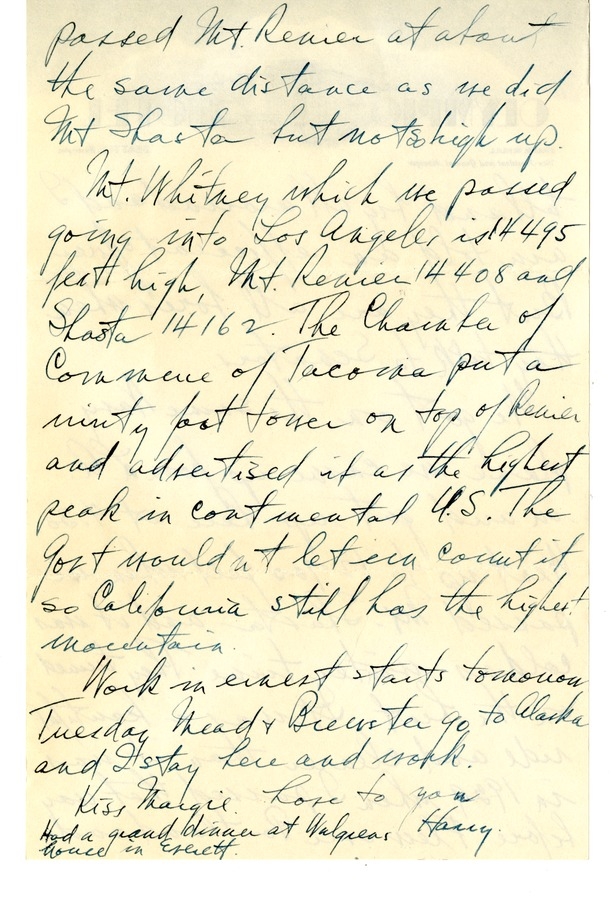 passed Mt. Renier at about
the same distance as we did
Mt Shasta but not so high up.
Mt. Whitney which we passed
going into Los Angeles is 14495
feet high, Mt. Renier 14408 and
Shasta 14162. The Chamber of
Commerce of Tacoma put a
ninty foot tower on top of Renier
and advertised it as the highest
peak in continental U.S. The
Govt wouldn't let em count it
so California still has the highest
mountain.
Work in ernest starts tomorrow
Tuesday Mead & Brewster go to Alaska
and I stay here and work.
Kiss Margie. Love to you
Harry.
Had a grand dinner at Walgrens
house in Everett.